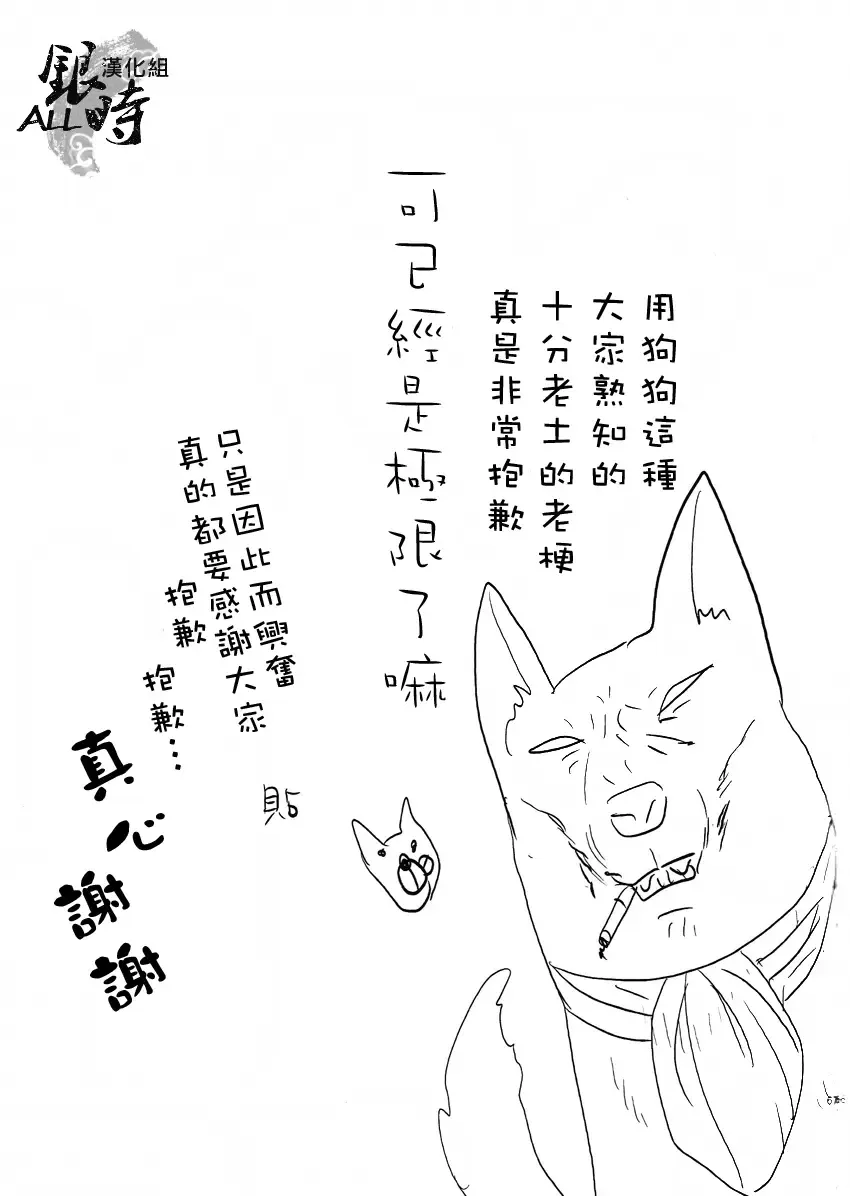 銀時
ALL
漢化組
用狗狗這種
大家熟知的
十分老土的老梗
真是非常抱歉
可已經是極限了嘛
只是因此而興奮
真的都要感謝大家
抱歉
抱歉…
真心謝謝
貼